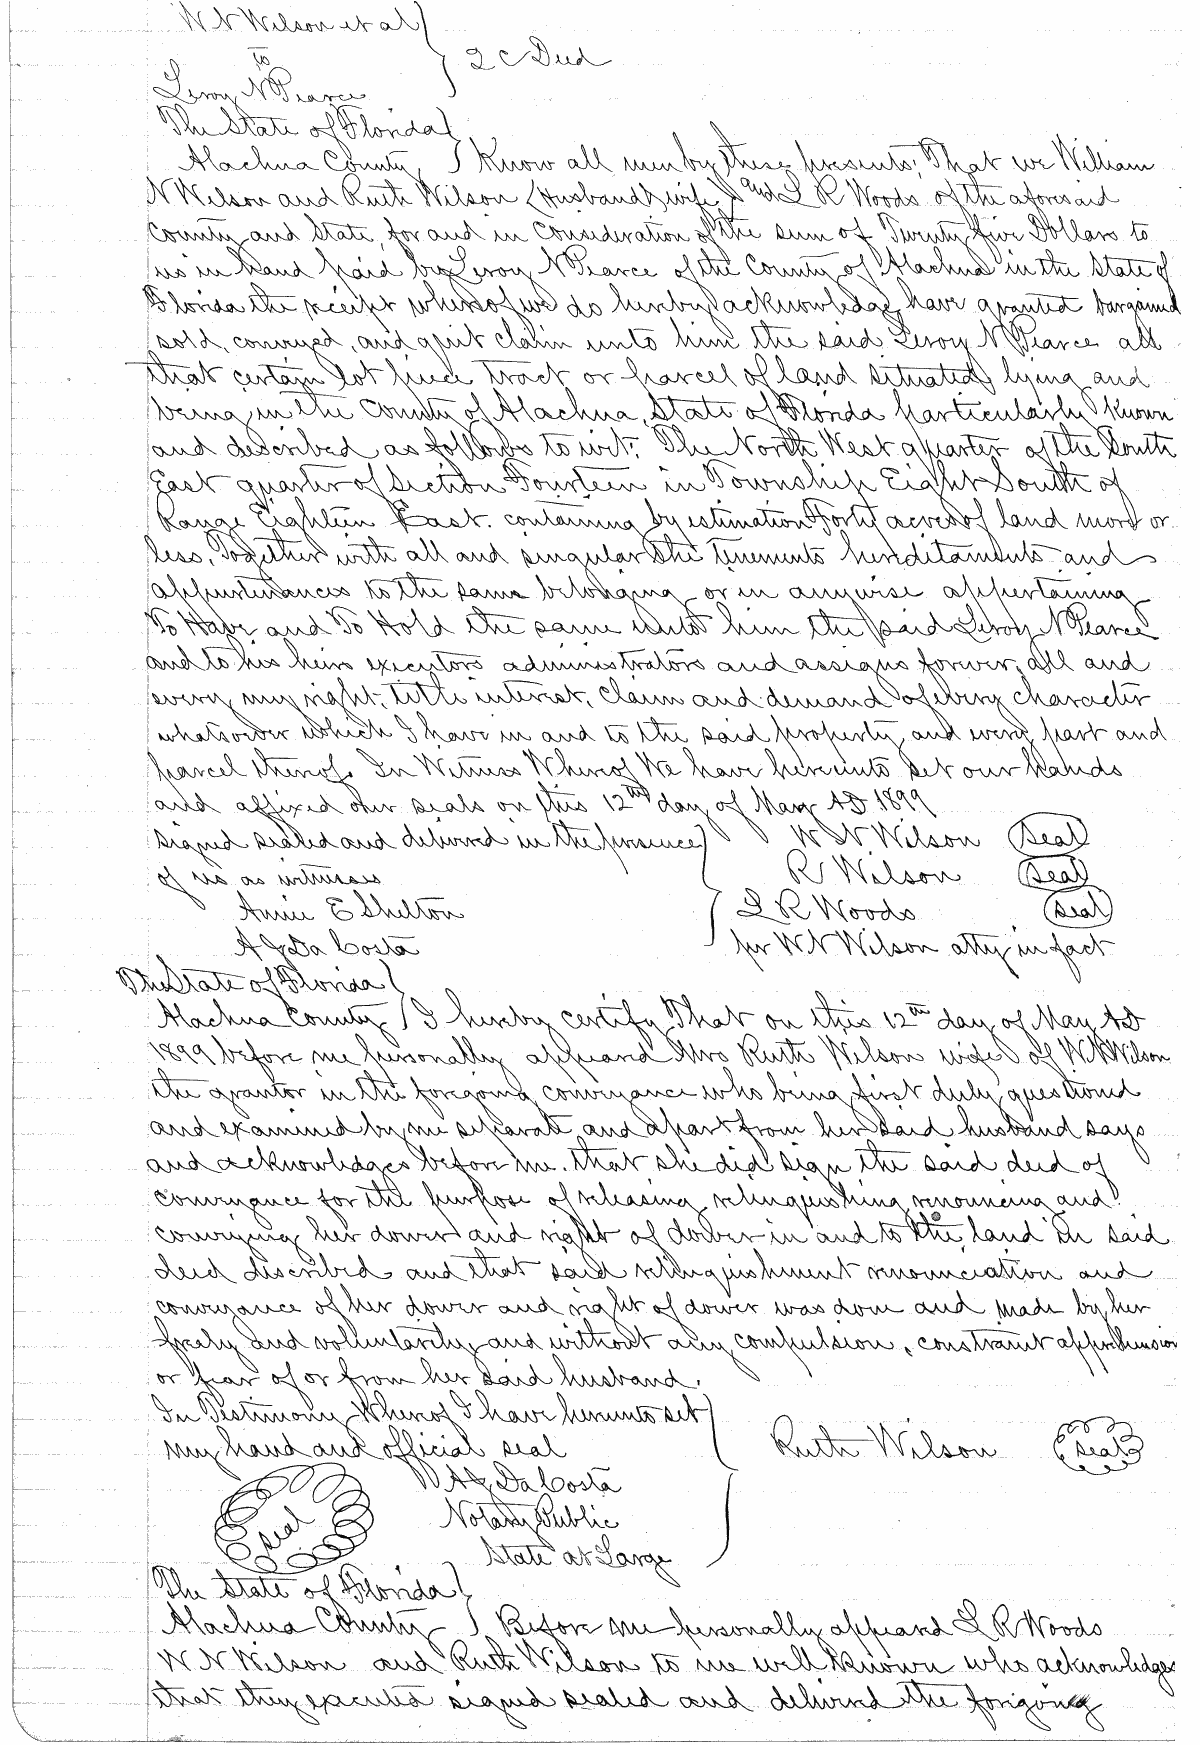 W N Wilson et al
to } 2 C Deed
Leroy N Pearce
The State of Florida }
Alachua County } Know all men by these presents; That we William
N Wilson and Ruth Wilson (Husband & wife) and L R Woods of the aforesaid
County and State, for and in Consideration of the sum of Twenty five Dollars to
us in hand paid by Leroy N Pearce of the County of Alachua in the State of
Florida the receipt whereof we do hereby acknowledge, have granted bargained
sold, conveyed, and quit claim unto him the said Leroy N Pearce all
that certain lot piece tract or parcel of land situated, lying and
being in the County of Alachua, State of Florida particularly known
and described as follows to wit: The North West quarter of the South
East quarter of Section Fourteen in Township Eight South of
Range Eighteen East. containing by estimation Forty acres of land more or
less, Together with all and singular the tenements hereditaments and
appurtenances to the same belonging or in anywise appertaining
To Have and To Hold the same unto him the said Leroy N Pearce
and to his heirs executors administrators and assigns forever, all and
every my right, title interest, claim and demand of every character
whatsoever which I have in and to the said property and every part and
parcel thereof. In Witness Whereof We have hereunto set our hands
and affixed our seals on this 12th day of May AD 1899
signed sealed and delivered in the presence } W N Wilson (Seal)
of us as witnesses R Wilson (Seal)
Annie E Shelton L R Woods (Seal)
A J Da Costa per W N Wilson atty in fact
The State of Florida }
Alachua County } I hereby certify That on this 12th day of May AD
1899 before me personally appeared Mrs Ruth Wilson wife of W N Wilson
the grantor in the foregoing conveyance who being first duly questioned
and examined by me separate and apart from her said husband says
and acknowledges before me. that she did sign the said deed of
conveyance for the purpose of releasing relinquishing renouncing and
conveying her dower and right of dower in and to the land in said
deed described and that said relinquishment renunciation and
conveyance of her dower and right of dower was done and made by her
freely and voluntarily, and without any compulsion, constraint apprehension
or fear of or from her said husband.
In Testimony Whereof I have hereunto set
my hand and official seal } Ruth Wilson (seal)
A J Da Costa
seal Notary Public
State at Large
The State of Florida }
Alachua County } Before me personally appeared L R Woods
W N Wilson and Ruth Wilson to me well known who acknowledges
that they executed signed sealed and delivered the foregoing